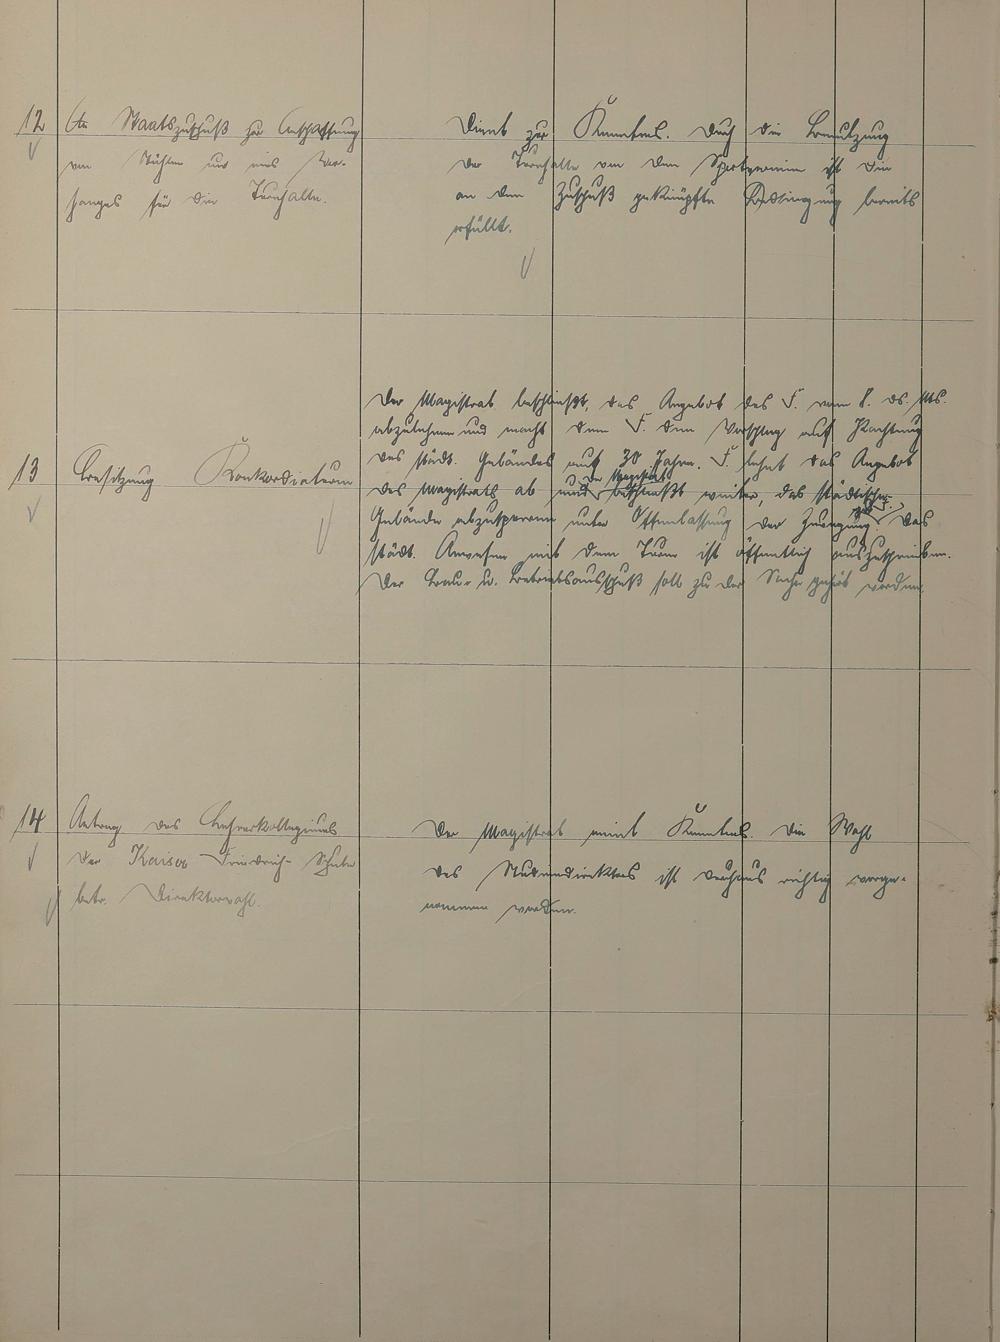 12
Staatszuschuß zur Anschaffung
von Stühlen und eines Vor-
hanges für die Turnhalle.
Dient zur Kenntnis. Durch die Benutzung
der Turnhalle von dem Sportverein ist die
an den Zuschuß geknüpfte Bedingung bereits
erfüllt.
13
Besitzung
Der Magistrat beschließt, das Angebot des F. vom 8. ds. Mts.
abzulehnen und macht dem F. den Vorschlag auf Pachtung
des städt. Gebäudes auf 30 Jahre. F. lehnt das Angebot
der Magistrat
des Magistrats ab und beschließt weiter, das städtische
zu F.
Gebäude abzusperren unter Offenlassung der Zuwegung. Das
städt. Anwesen mit dem Turm ist öffentlich auszuschreiben.
Der Bau- u. Betriebsausschuß soll zu der Sache gehört werden.
14
Antrag des Lehrerkollegiums
der Kaiser Friedrich-Schule
betr. Direktorwahl.
Der Magistrat nimmt Kenntnis. Die Wahl
des Studiendirektors ist durchaus richtig vorge-
nommen worden.